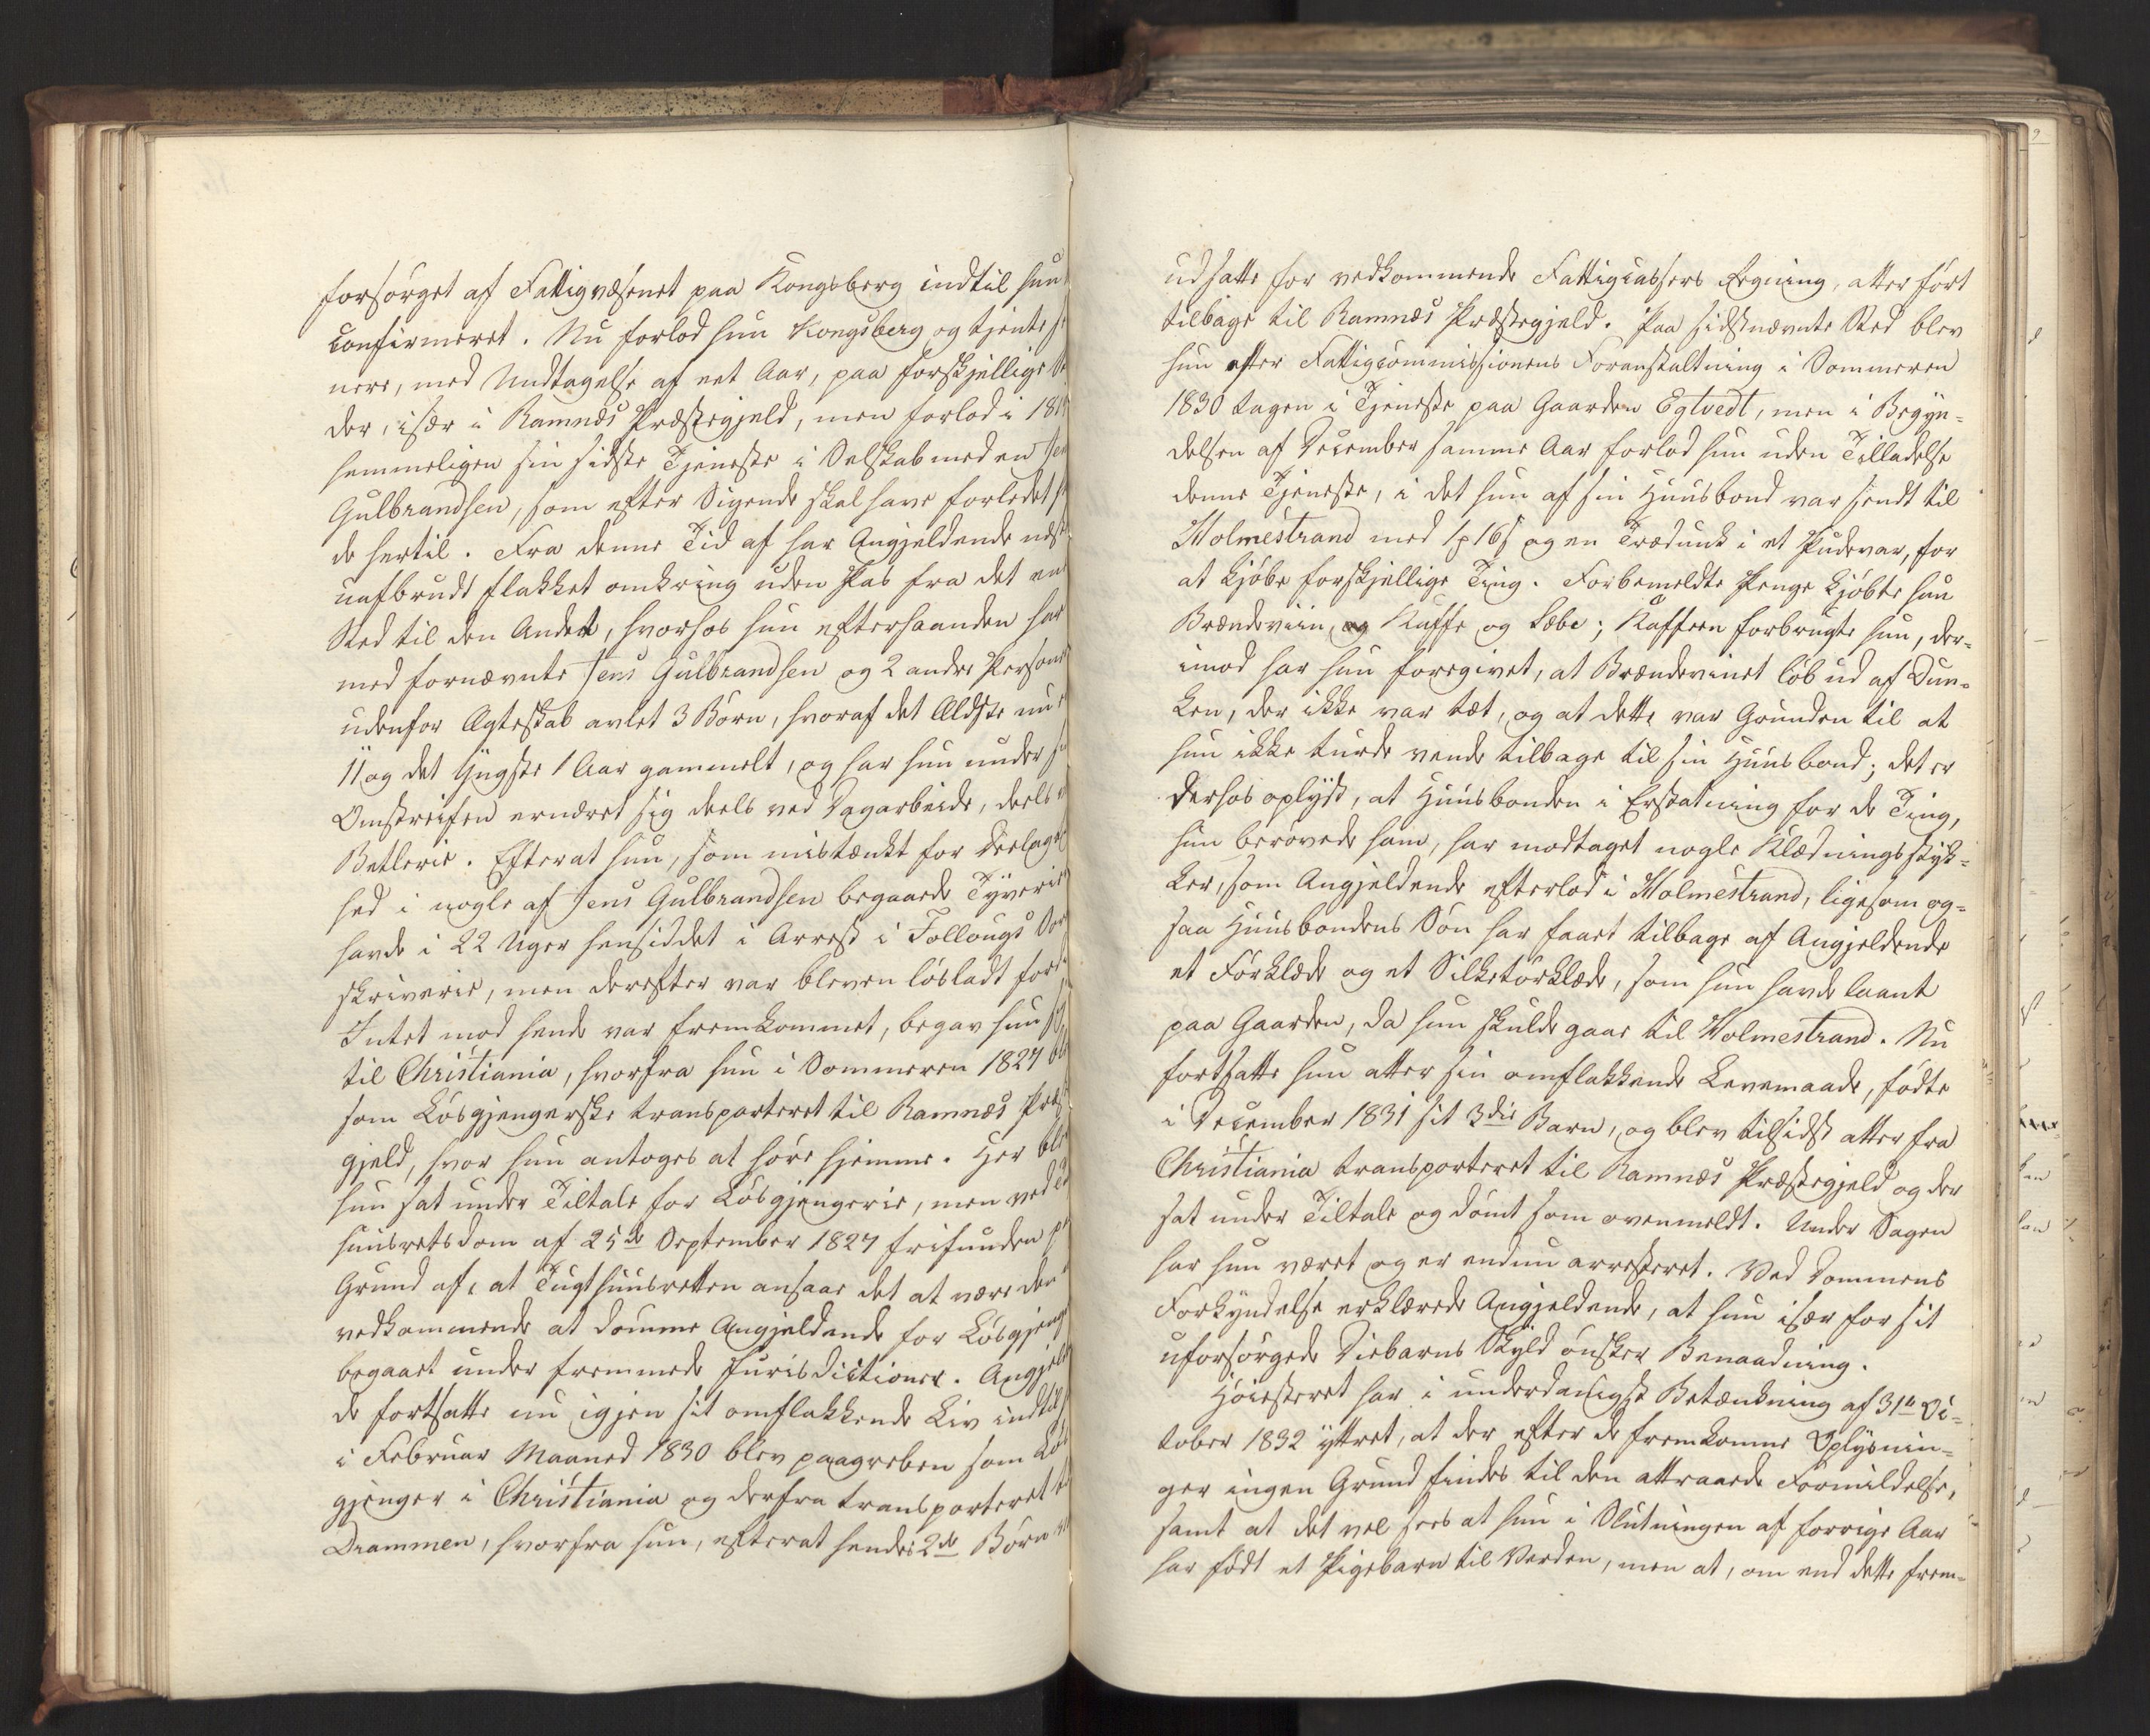 forsörget af Fattigvæsenet paa Kongsberg indtil hun
confirmeret. Nu forlod hun Kongsberg og tjente
nere, med Undtagelse af eet Aar, paa forskjellige
der, især i Ramnæs Præstegjeld, men forlod i
hemmeligen sin sidste Tjeneste i Selskab med en
Gulbrandsen, som efter Sigende skal have forledet
de hertil. Fra denne Tid af har Angjeldende
uafbrudt flakket omkring uden Pas fra det
Sted til den Andet, hvorhos hun efterhaanden har
med fornævnte Jens Gulbrandsen og 2 andre
udenfor Ægteskab avlet 3 Börn, hvoraf det Ældste nu
11 og det Yngste 1 Aar gammelt, og har hun under
Omstreifen ernæret sig deels ved Dagarbeide, deels
Betlerie. Efterat hun, som mistænkt for
hed i nogle af Jens Gulbrandsen begaaede Tyverie
havde i 22 Uger hensiddet i Arrest i Follougs
skriverie, men derefter var bleven lösladt
Intet mod hende var fremkommet, begav hun
til Christiania, hvorfra hun i Sommeren 1827
som Lösgjengerske transporteret til Ramnæs
gjeld, hvor hun antoges at höre hjemme. Her
hun sat under Tiltale for Lösgjengerie, men ved
huusretsdom af 25de September 1827 frifunden
Grund af, at Tugthuusretten ansaae det at være den
vedkommende at dömme Angjeldende for
begaaet under fremmede Jurisdictioner.
de fortsatte nu igjen sit omflakkende Liv
i Februar Maaned 1830 blev paagreben som
gjenger i Christiania og derfra transporteret
Drammen, hvorfra hun, efterat hendes 2de Börn
udsatte for vedkommende Fattigcassers Regning, atter fört
tilbage til Ramnæs Præstegjeld. Paa sidstnævnte Sted blev
hun efter Fattigcommissionens Foranstaltning i Sommeren
1830 tagen i Tjeneste paa Gaarden Egtvedt, men i Begyn-
delsen af December samme Aar forlod hun uden Tilladelse
denne Tjeneste, i det hun af sin Huusbond var sendt til
Holmestrand med og en Trædunk i et Pudevar, for
at kjöbe forskjellige Ting. Forbemeldte Penge kjöbte hun
Brændeviin, og Kaffe og Sæbe; Kaffeen forbrugte hun, der-
imod har hun foregivet, at Brændevinet löb ud af Dun-
ken, der ikke var tæt, og at dette var Grunden til at
hun ikke turde vende tilbage til sin Huusbond; det er
derhos oplyst, at Huusbonden i Erstatning for de Ting,
hun berövede ham, har modtaget nogle Klædningsstyk-
ker, som Angjeldende efterlod i Holmestrand, ligesom og-
saa Huusbondens Sön har faaet tilbage af Angjeldende
et Förklæde og et Silketörklæde, som hun havde laant
paa Gaarden, da hun skulde gaae til Holmestrand. Nu
fortsatte hun atter sin omflakkende Levemaade, födte
i December 1831 sit 3die Barn, og blev tilsidst atter fra
Christiania transporteret til Ramnæs Præstegjeld og der
sat under Tiltale og dömt som ovenmeldt. Under Sagen
har hun været og er endnu arresteret. Ved Dommens
Forkyndelse erklærede Angjeldende, at hun især for sit
uforsörgede Diebarns Skyld önsker Benaadning.
Höiesteret har i underdanigst Betænkning af 31te Oc-
tober 1832 yttret, at der efter de fremkomne Oplysnin-
ger ingen Grund findes til den attraaede Formildelse,
samt at det vel sees at hun i Slutningen af forrige Aar
har födt et Pigebarn til Verden, men at, om end dette frem-